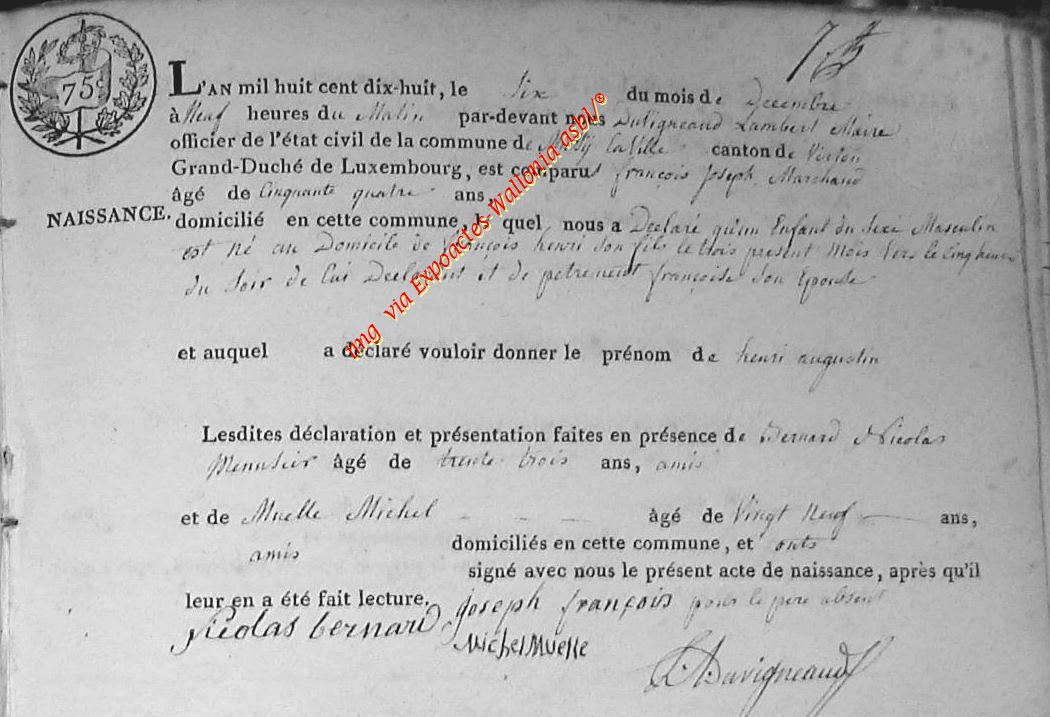 75
75
L'AN mil huit cent dix-huit, le six du mois de Decembre
à Neuf heures du Matin par-devant nous Duvigneaud Lambert Maire
officier de l'état civil de la commune de laVille canton de Virton
Grand-Duché de Luxembourg, est comparu françois Joseph Marchand
âgé de Cinquante quatre ans,
NAISSANCE. domicilié en cette commune, lequel nous a Declaré qu'un Enfant du sexe Masculin
est né au Domicile de françois henri son fils le trois present Mois vers le cinq heures
du Soir de lui Declarant et de petrement françoise son Epouse
et auquel a déclaré vouloir donner le prénom de henri augustin
Lesdites déclaration et présentation faites en présence de Bernard Nicolas
Menusier âgé de trente trois ans, amis
et de Muelle Michel - - - âgé de Vingt Neuf ans,
amis domiciliés en cette commune, et onts
signé avec nous le présent acte de naissance, après qu'il
leur en a été fait lecture. joseph françois pour le pere absent
Nicolas bernard
Michel Muelle
L. Duvigneaud
Img via Expoactes-Wallonia asbl/©